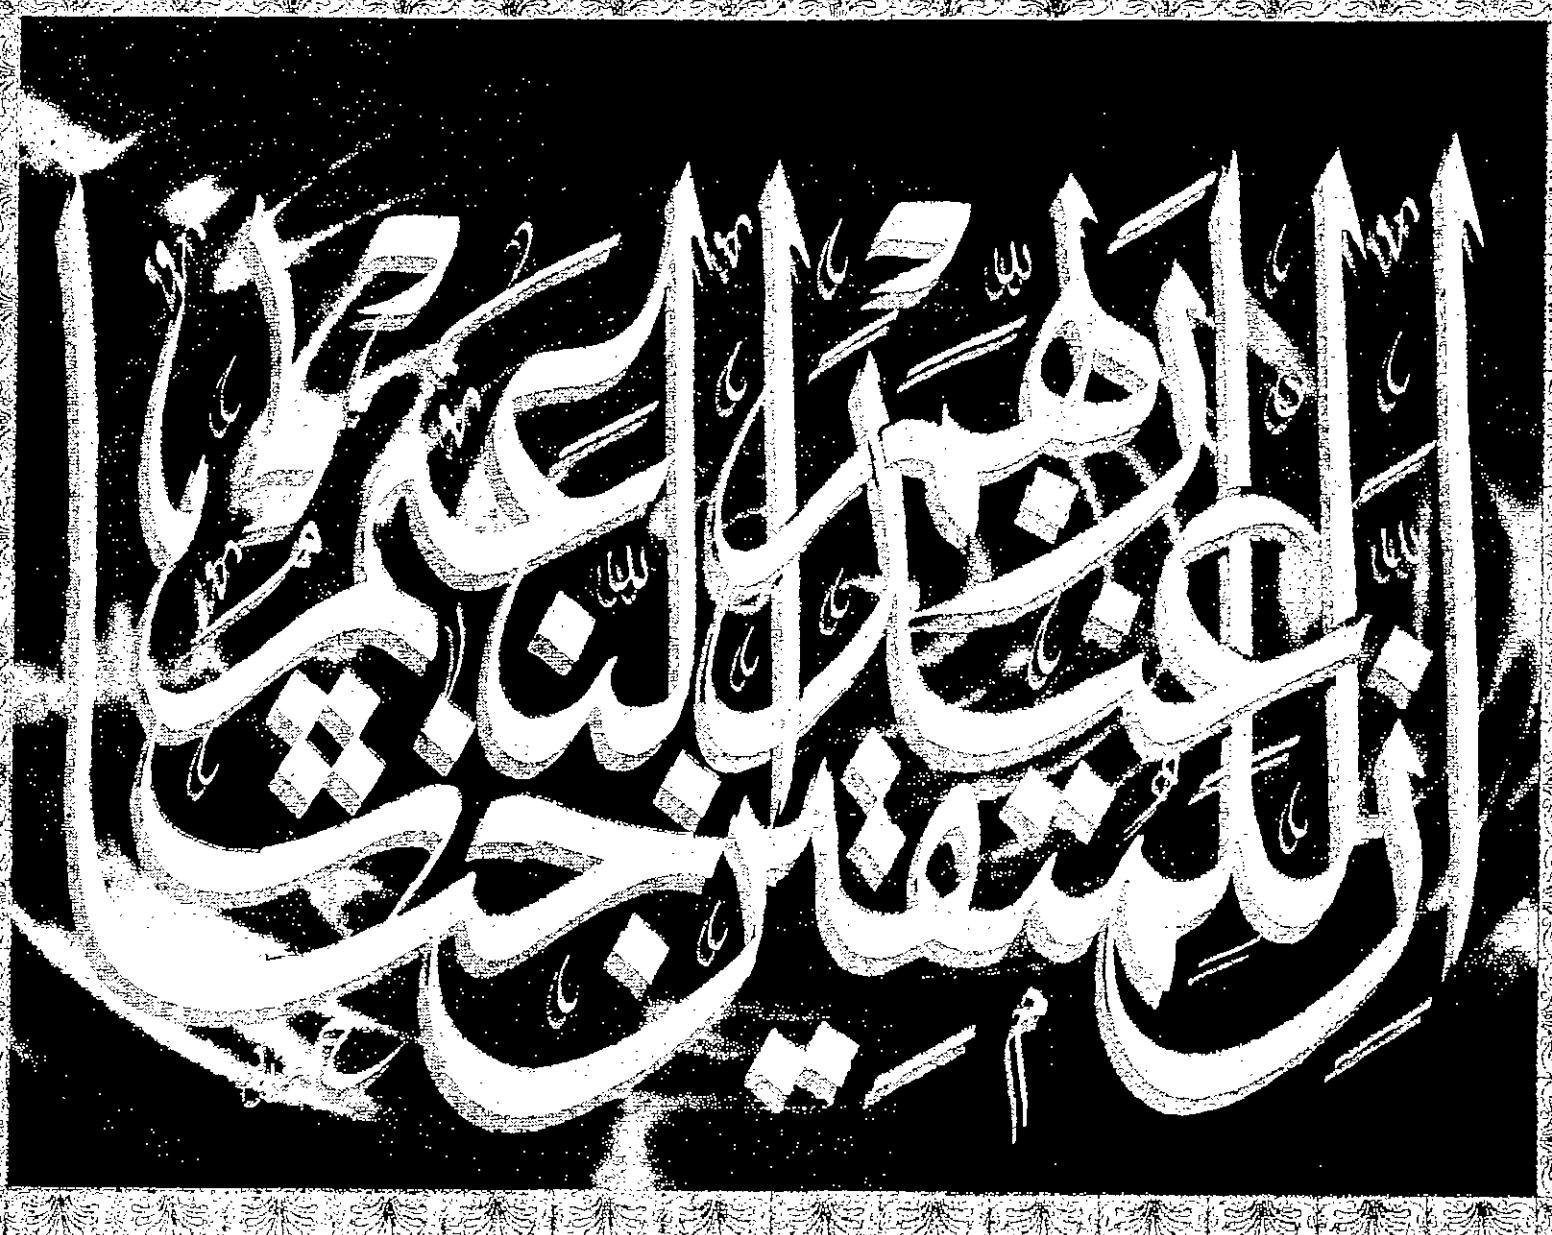 ان للمتقين عند ربهم جنات النعيم